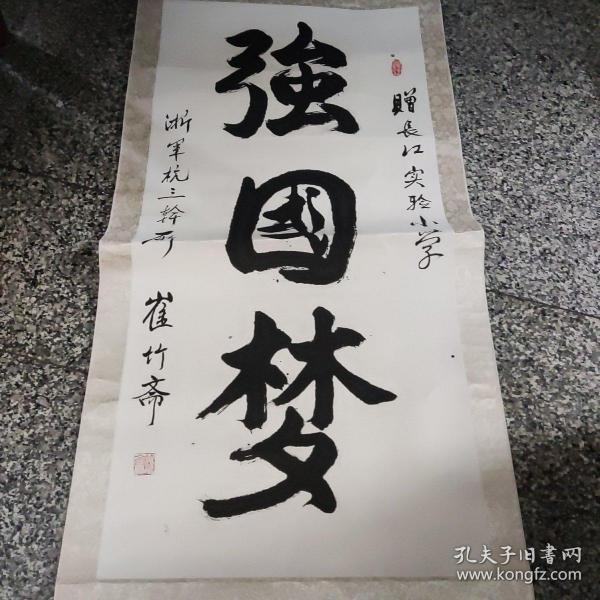 贈長江实验小学
強國梦
浙軍杭三幹所
崔竹斋
孔夫子旧书网
www.kongfz.com